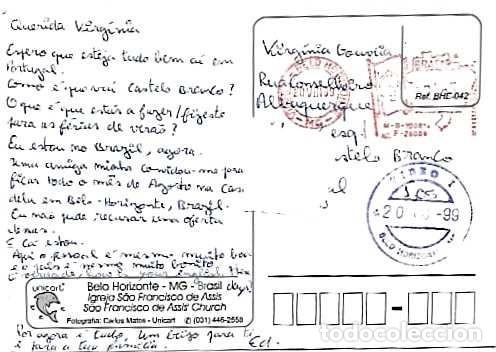 Querida Virgínia
Espero que esteja tudo bem aí em
Portugal.
Como é que vai Castelo Branco?
O que é que estás a fazer/fizeste
para as férias de verão?
Eu estou no Brazil, agora.
Uma amiga minha convidou-me para
ficar todo o mês de Agosto na casa
dela em Belo-Horizonte, Brazil.
Eu não pude recusar uma oferta
E cá estou.
Aqui o pessoal é mesmo muito
e o país é mesmo muito bonito
how is your english
days!
Por agora é tudo, um beijo para ti
e para a tua família.
Ed.
unicart
Belo Horizonte - MG - Brasil
Igreja São Francisco de Assis
São Francisco de Assis' Church
Fotografia: Carlos Matos - Unicart ✆ (031) 446-2558
Virgínia Gouveia
Rua Conselheiro
Albuquerque
esq.
stelo Branco
al
Ref. BHE-042
20
99